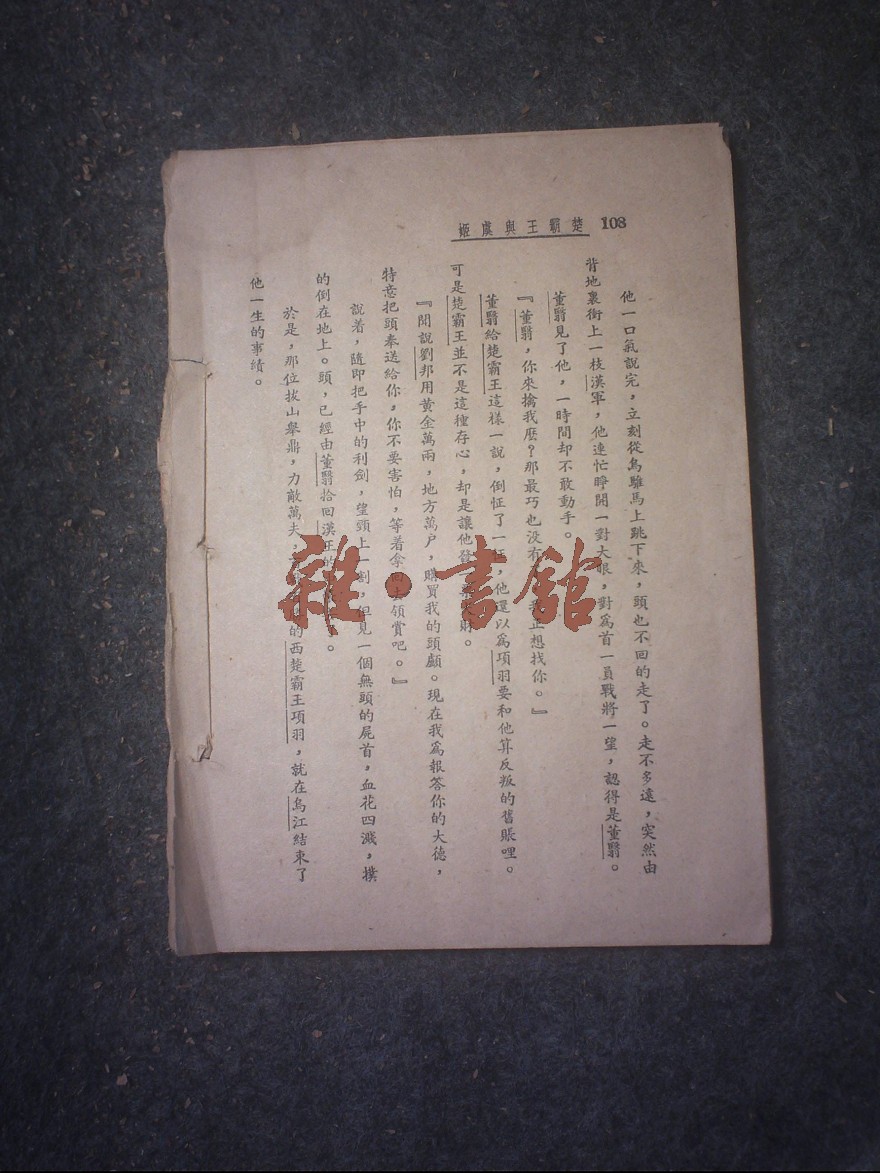 108
楚霸王與虞姬
他一口氣說完，立刻從烏騅馬上跳下來，頭也不回的走了。走不多遠，突然由
背地裏衝上一枝漢軍，他連忙睜開一對大眼，對為首一員戰將一望，認得是董翳。
董翳見了他，一時間却不敢動手。
『董翳，你來擒我麼？那最巧也没有正想找你。』
董翳給楚霸王這樣一說，倒怔了一怔，他還以為項羽要和他算反叛的舊賬哩。
可是楚霸王並不是這種存心，却是讓他發財。
『聞說劉邦用黃金萬兩，地方萬户，購買我的頭顱。現在我為報答你的大德，
特意把頭奉送給你，你不要害怕，等着拿回去領賞吧。』
說着，隨即把手中的利劍，望頭上一割，但見一個無頭的屍首，血花四濺，撲
的倒在地上。頭，已經由董翳拾回漢王的。
於是，那位拔山舉鼎，力敵萬夫，的西楚霸王項羽，就在烏江結束了
他一生的事績。
雜·書館